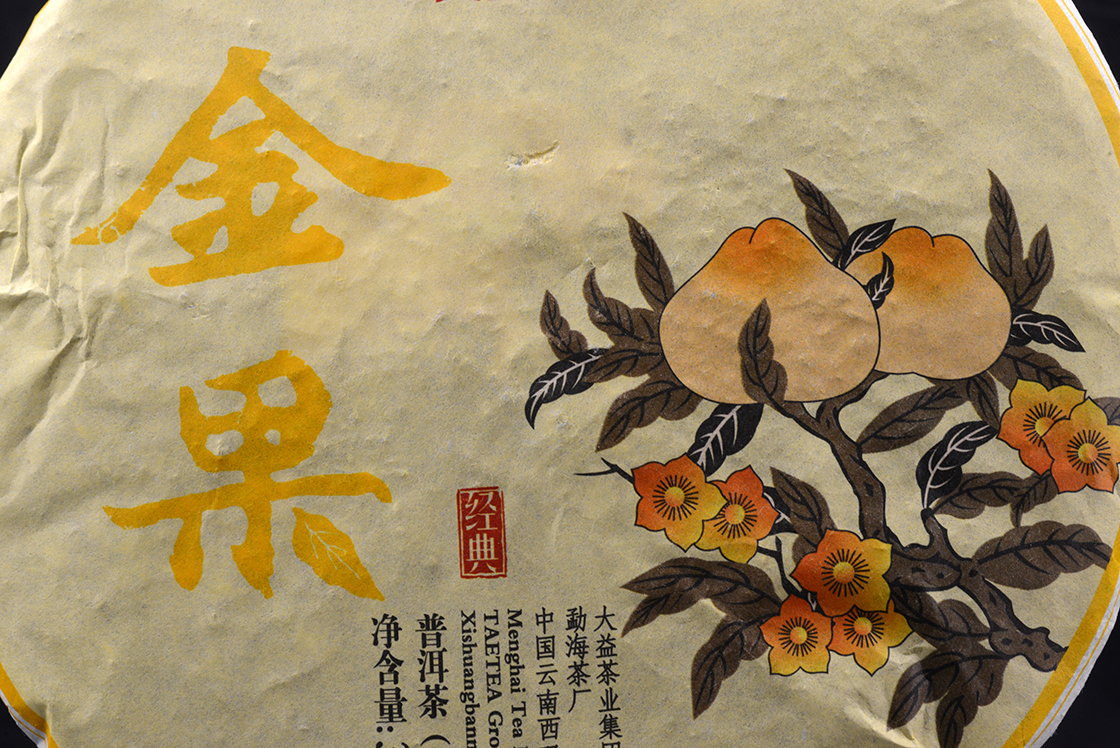 金果
经典
大益茶业集团
勐海茶厂
中国云南西
Menghai Tea
TAETEA Gro
Xishuangbann
普洱茶（
净含量: